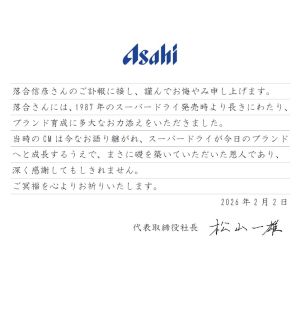 Asahi
落合信彦さんのご訃報に接し、謹んでお悔やみ申し上げます。
落合さんには、1987年のスーパードライ発売時より長きにわたり、
ブランド育成に多大なお力添えをいただきました。
当時のCMは今なお語り継がれ、スーパードライが今日のブランド
へと成長するうえで、まさに礎を築いていただいた恩人であり、
深く感謝してもしきれません。
ご冥福を心よりお祈りいたします。
2026年2月2日
代表取締役社長 松山一雄